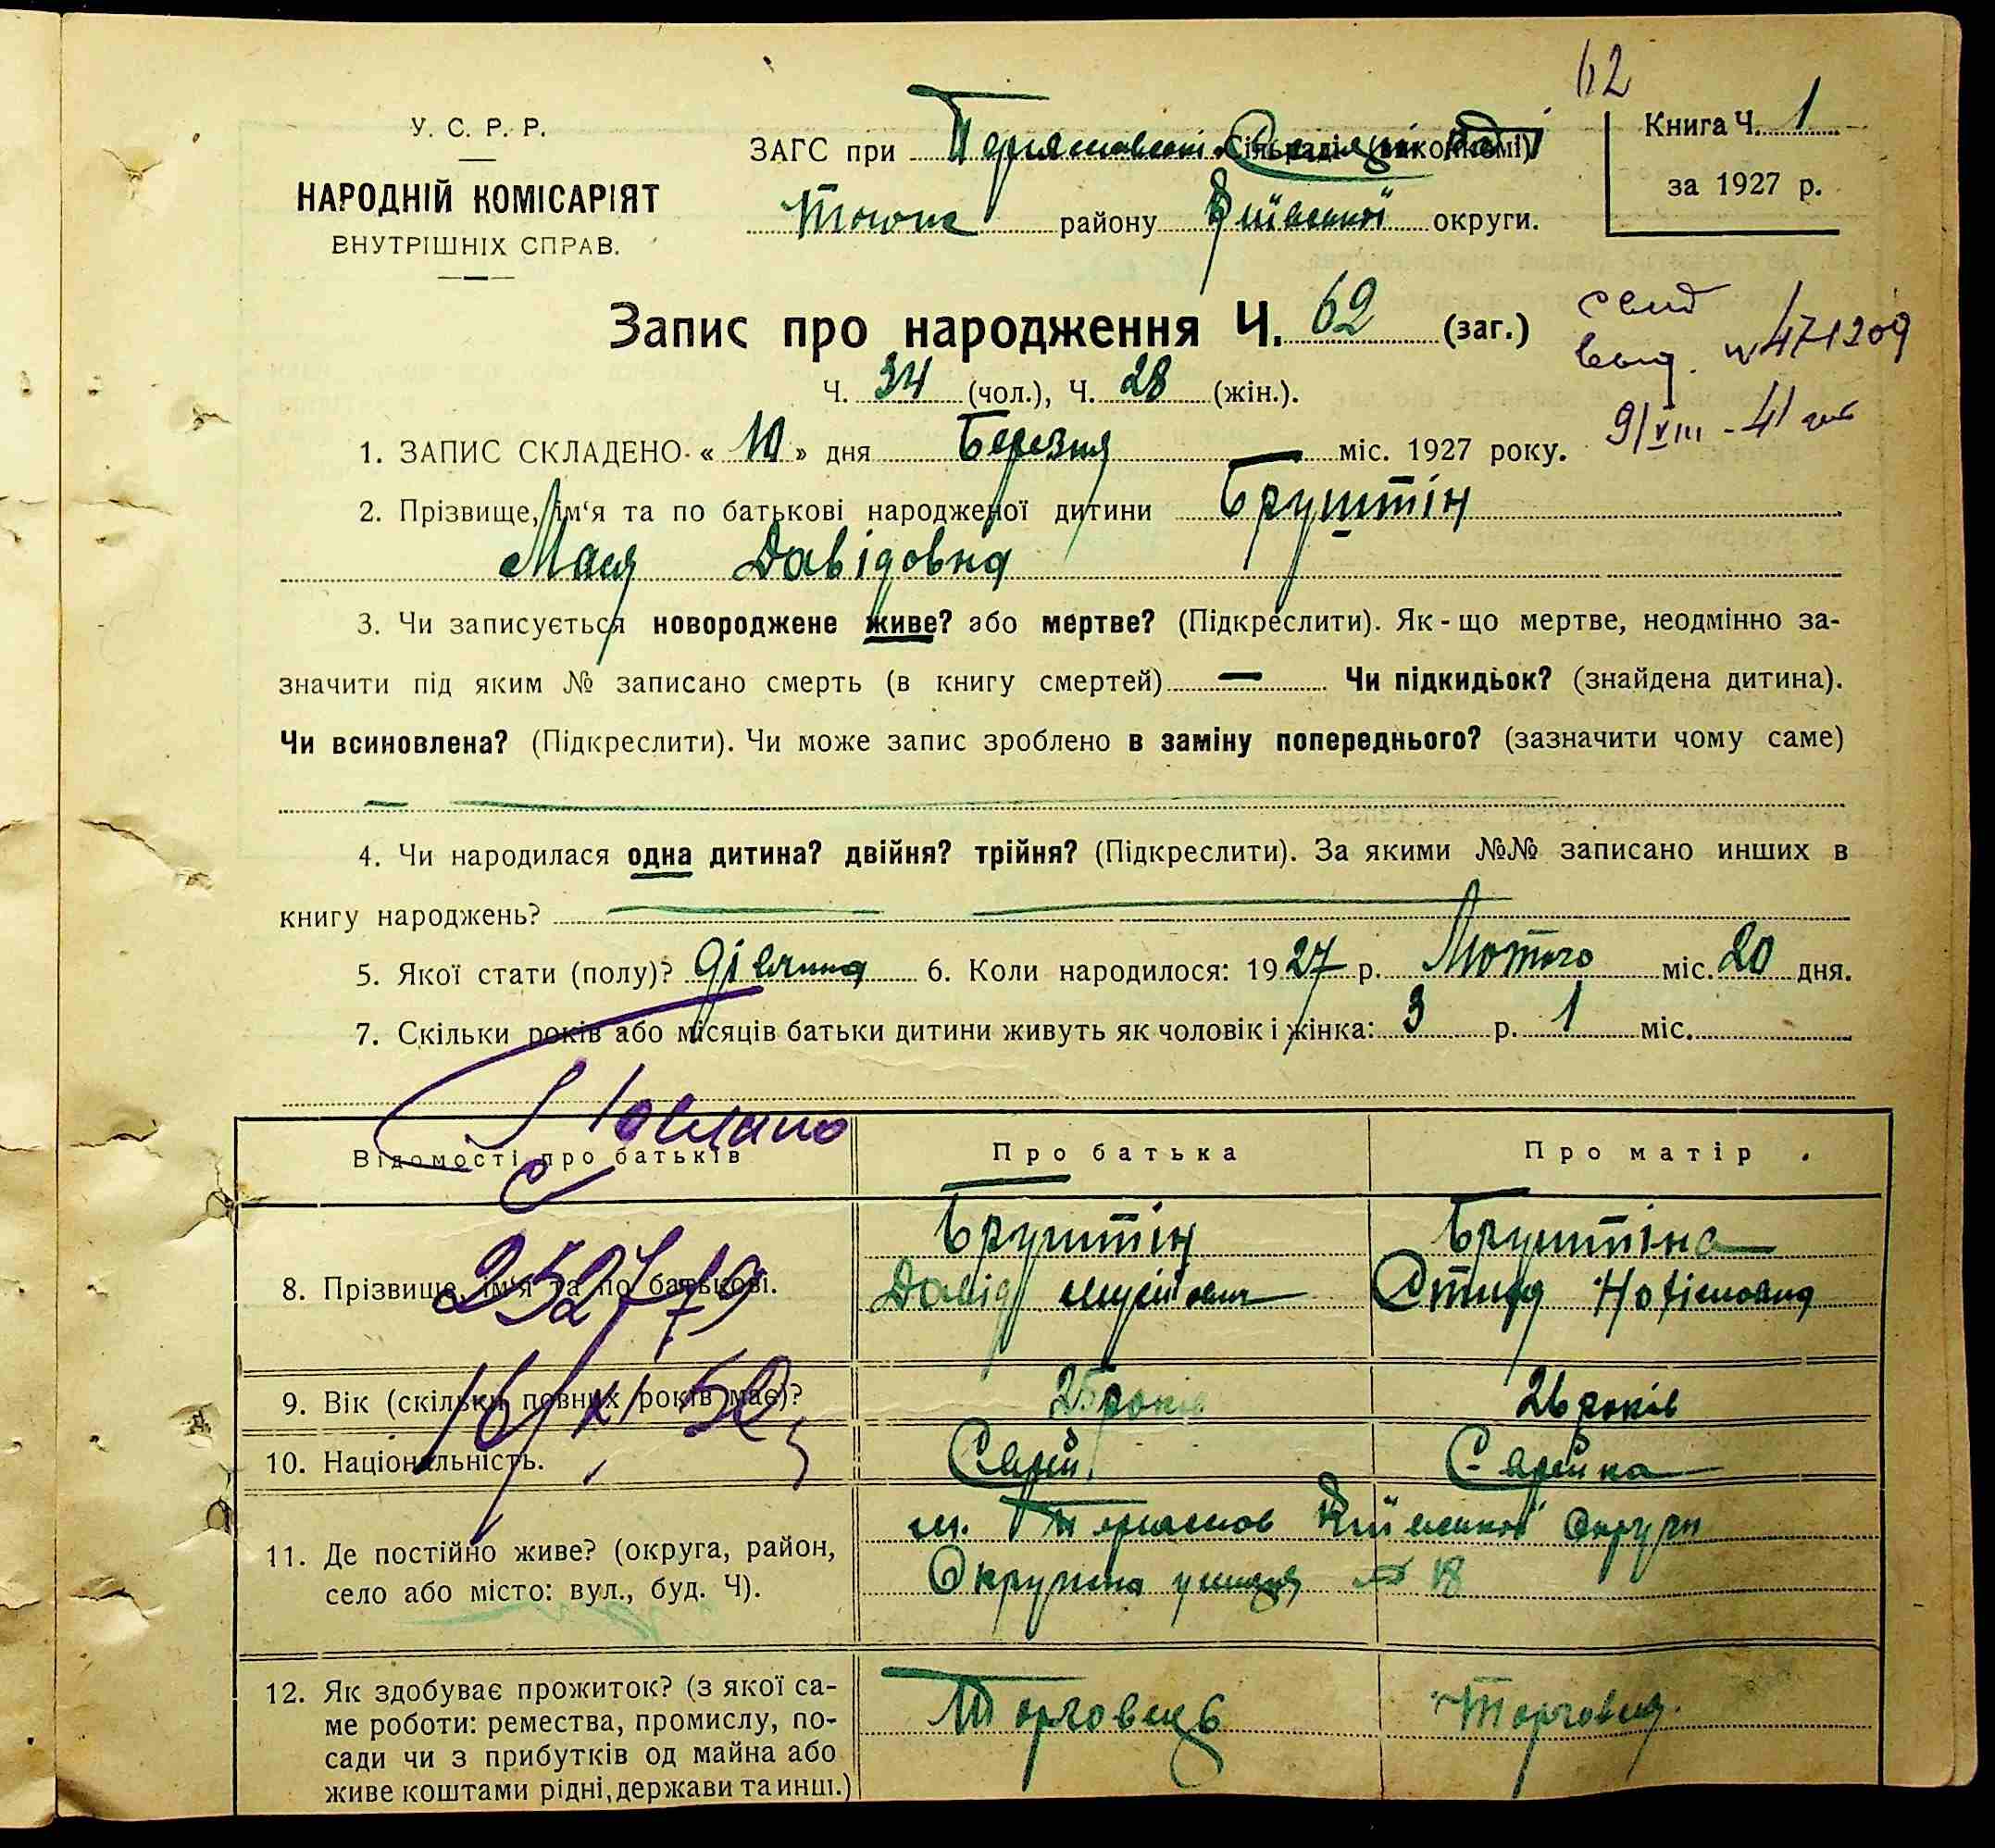 62
У. С. Р. Р.
НАРОДНІЙ КОМІСАРІЯТ
ВНУТРІШНІХ СПРАВ.
ЗАГС при Сільраді (виконкомі)
району Київської округи.
Книга Ч. 1
за 1927 р.
Запис про народження Ч. 62 (заг.)
Ч. 34 (чол.), Ч. 28 (жін.).
выд. № 471209
9/VIII - 41
1. ЗАПИС СКЛАДЕНО « 10 » дня Березня міс. 1927 року.
2. Прізвище, ім‘я та по батькові народженої дитини Бруштін
Мася Давідовна
3. Чи записується новороджене живе? або мертве? (Підкреслити). Як-що мертве, неодмінно за-
значити під яким № записано смерть (в книгу смертей) — Чи підкидьок? (знайдена дитина).
Чи всиновлена? (Підкреслити). Чи може запис зроблено в заміну попереднього? (зазначити чому саме)
4. Чи народилася одна дитина? двійня? трійня? (Підкреслити). За якими №№ записано инших в
книгу народжень?
5. Якої стати (полу)? дівчина 6. Коли народилося: 1927 р. Лютого міс. 20 дня.
7. Скільки років або місяців батьки дитини живуть як чоловік і жінка: 3 р. 1 міс.
Відомості про батьків
Про батька
Про матір
8. Прізвище, ім‘я та по батькові.
Бруштін
Давід
Бруштіна
9. Вік (скільки повних років має)?
25 років
26 років
16/XI 50
10. Національність.
Єврей
Єврейка
11. Де постійно живе? (округа, район,
село або місто: вул., буд. Ч).
м. Київської Округи
улиця № 18
12. Як здобуває прожиток? (з якої са-
ме роботи: ремества, промислу, по-
сади чи з прибутків од майна або
живе коштами рідні, держави та инш.)
Торговець